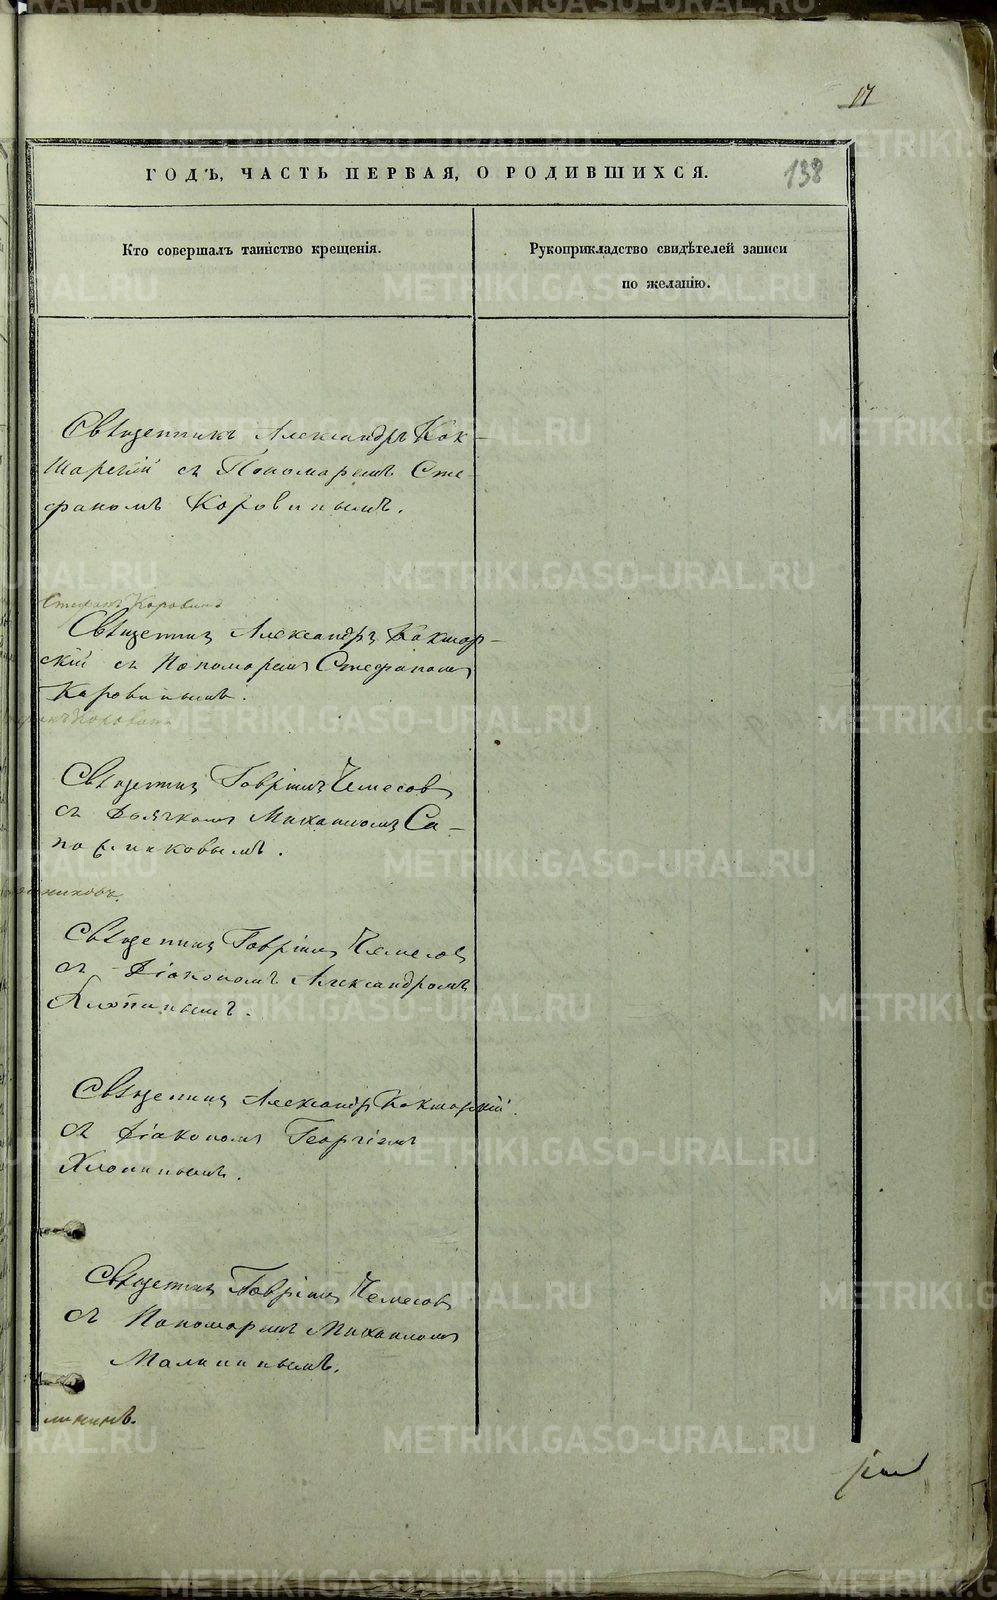 17
ГОДЪ, ЧАСТЬ ПЕРВАЯ, О РОДИВШИХСЯ.
138
Кто совершалъ таинство крещенія.
Рукоприкладство свидѣтелей записи
по желанію.
Священникъ Александръ Кок-
шарскій съ Пономаремъ Сте-
фаномъ Коровинымъ.
Стефанъ Коровинъ
Священник Александръ Кокшар-
скій съ Пономарем Стефаномъ
Коровинымъ.
Коровинъ
Священник Гавріилъ Чемесов
съ Дьячкомъ Михаиломъ Са-
пожниковымъ.
никовъ.
Священник Гавріилъ Чемесов
съ Діакономъ Александромъ
Хлопинымъ.
Священник Александръ Кокшарскій
съ Діакономъ Георгіемъ
Хлопинымъ.
Священник Гавріилъ Чемесов
съ Пономаремъ Михаиломъ
Малининымъ.
лининъ.
METRIKI.GASO-URAL.RU